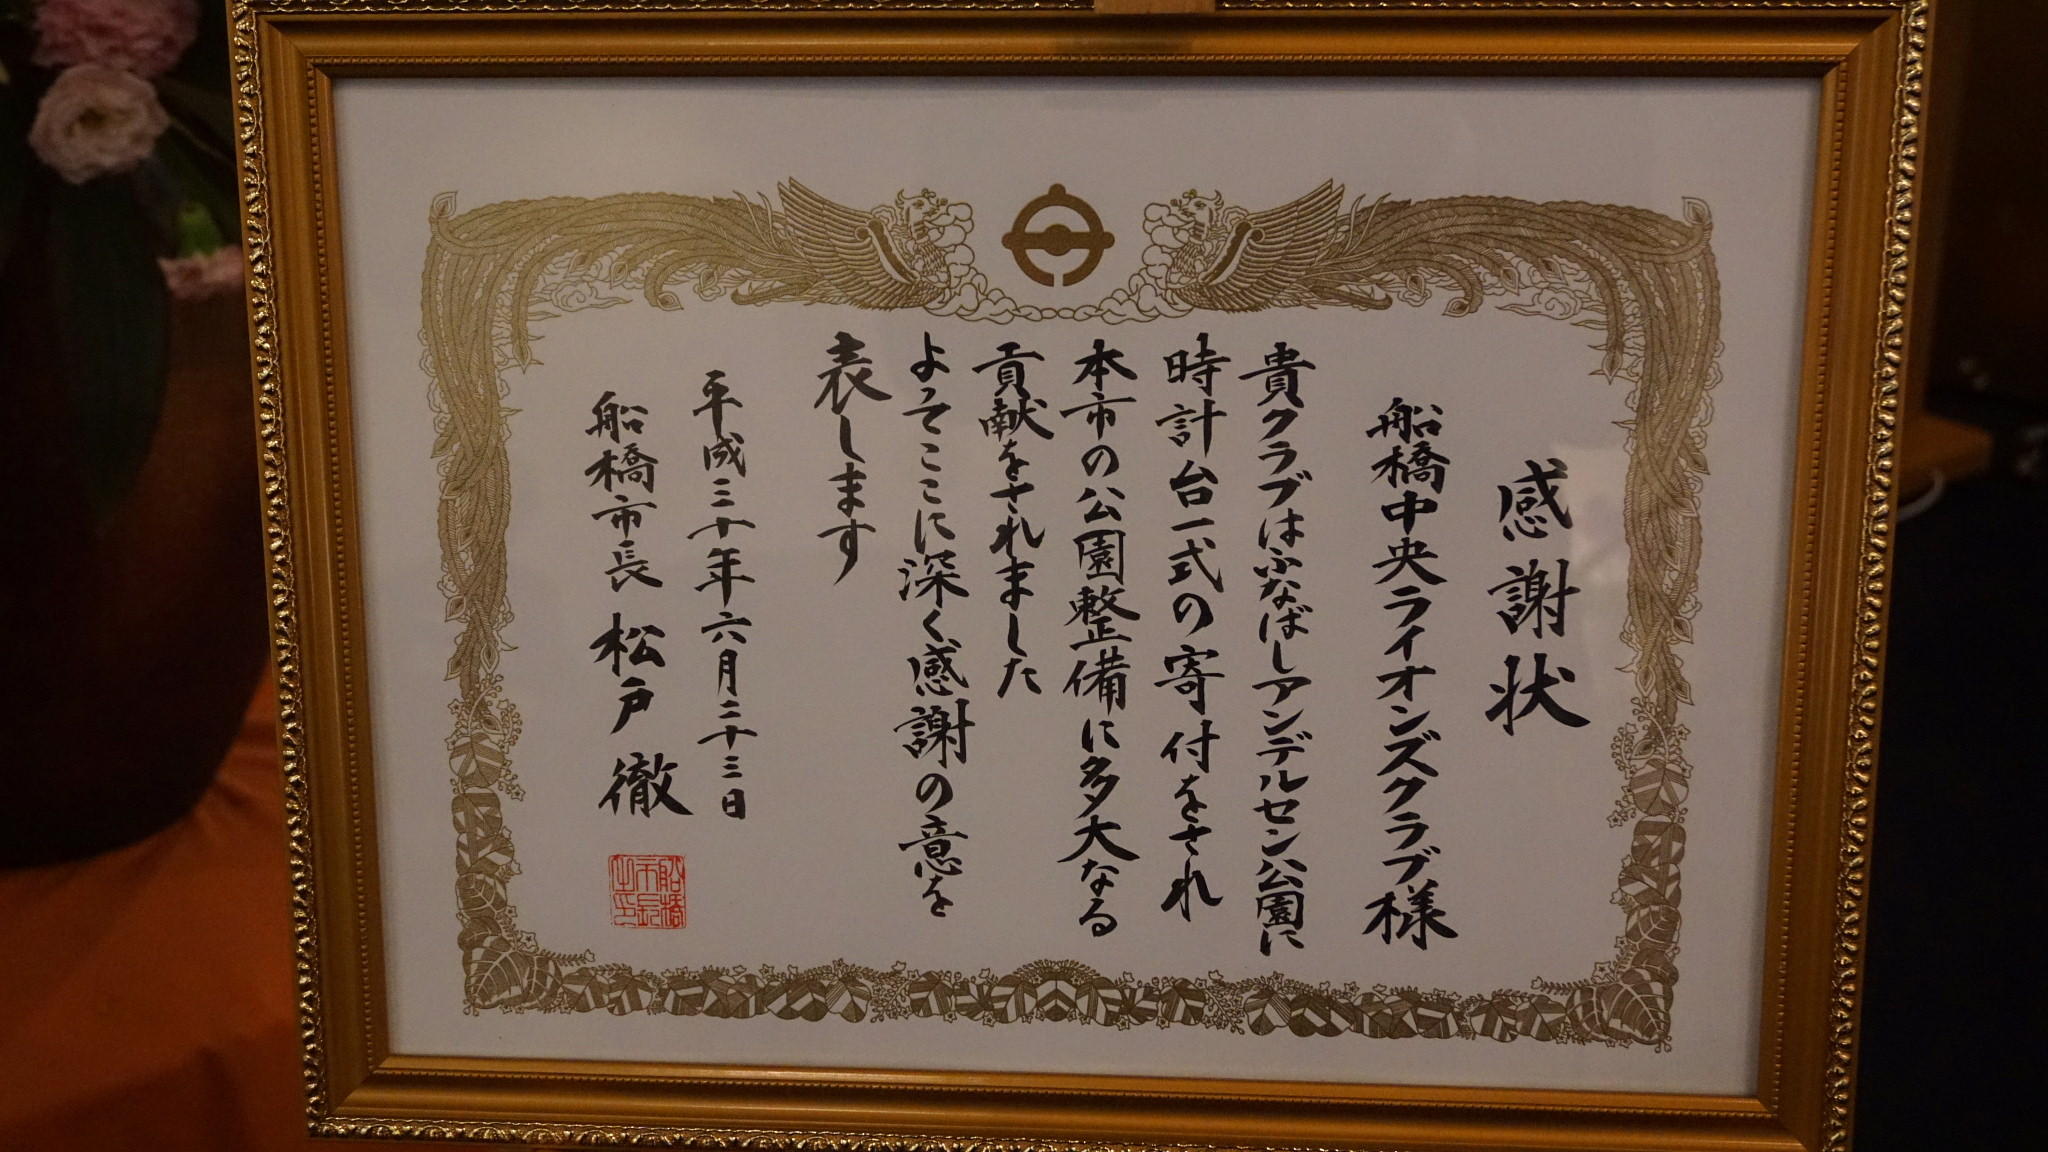 感謝状
船橋中央ライオンズクラブ様
貴クラブはふなばしアンデルセン公園に
時計台一式の寄付をされ
本市の公園整備に多大なる
貢献をされました
よってここに深く感謝の意を
表します
平成三十年六月二十三日
船橋市長 松戸 徹
船橋
市長
之印